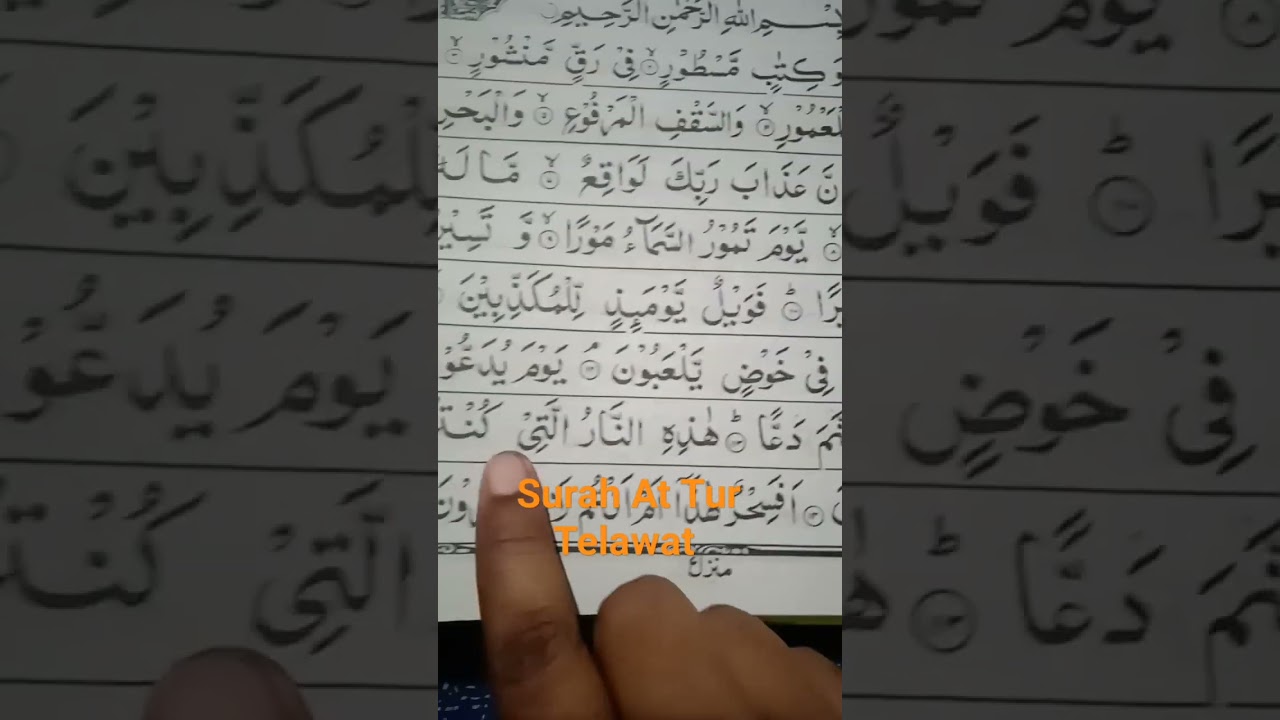 بِسْمِ اللهِ الرَّحْمٰنِ الرَّحِيْمِ
وَكِتٰبٍ مَّسْطُوْرٍ ۙ۲ فِيْ رَقٍّ مَّنْشُوْرٍ ۙ۳
لْمَعْمُوْرِ ۙ۴ وَالسَّقْفِ الْمَرْفُوْعِ ۙ۵ وَالْبَحْرِ
نَّ عَذَابَ رَبِّكَ لَوَاقِعٌ ۙ۷ مَّا لَهٗ
ۙ۸ يَّوْمَ تَمُوْرُ السَّمَآءُ مَوْرًا ۙ۹ وَّ تَسِيْرُ
يْرًا ؕ۱۰ فَوَيْلٌ يَّوْمَئِذٍ لِّلْمُكَذِّبِيْنَ
فِيْ خَوْضٍ يَّلْعَبُوْنَ ۘ۱۲ يَوْمَ يُدَعُّوْ
دَعًّا ؕ۱۳ هٰذِهِ النَّارُ الَّتِيْ كُنْتُ
اَفَسِحْرٌ هٰذَآ اَمْ اَنْتُمْ
Surah At Tur
Telawat
منزل